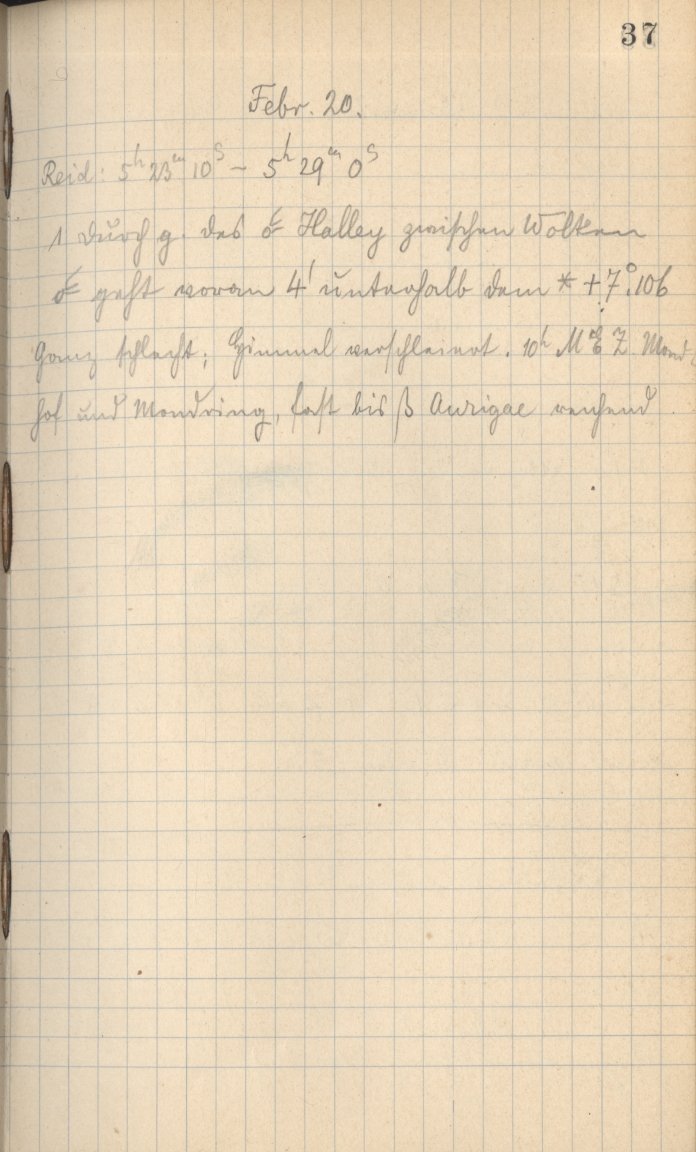 37
Febr. 20.
Reid: 5ʰ 23ᵐ 10ˢ – 5ʰ 29ᵐ 0ˢ
1 Durchg. des ☄ Halley zwischen Wolken
☄ geht voran 4' unterhalb dem * +7°.106
Ganz schlecht; Himmel verschleiert. 10ʰ M E Z. Mond-
hof und Mondring, fast bis β Aurigae reichend.